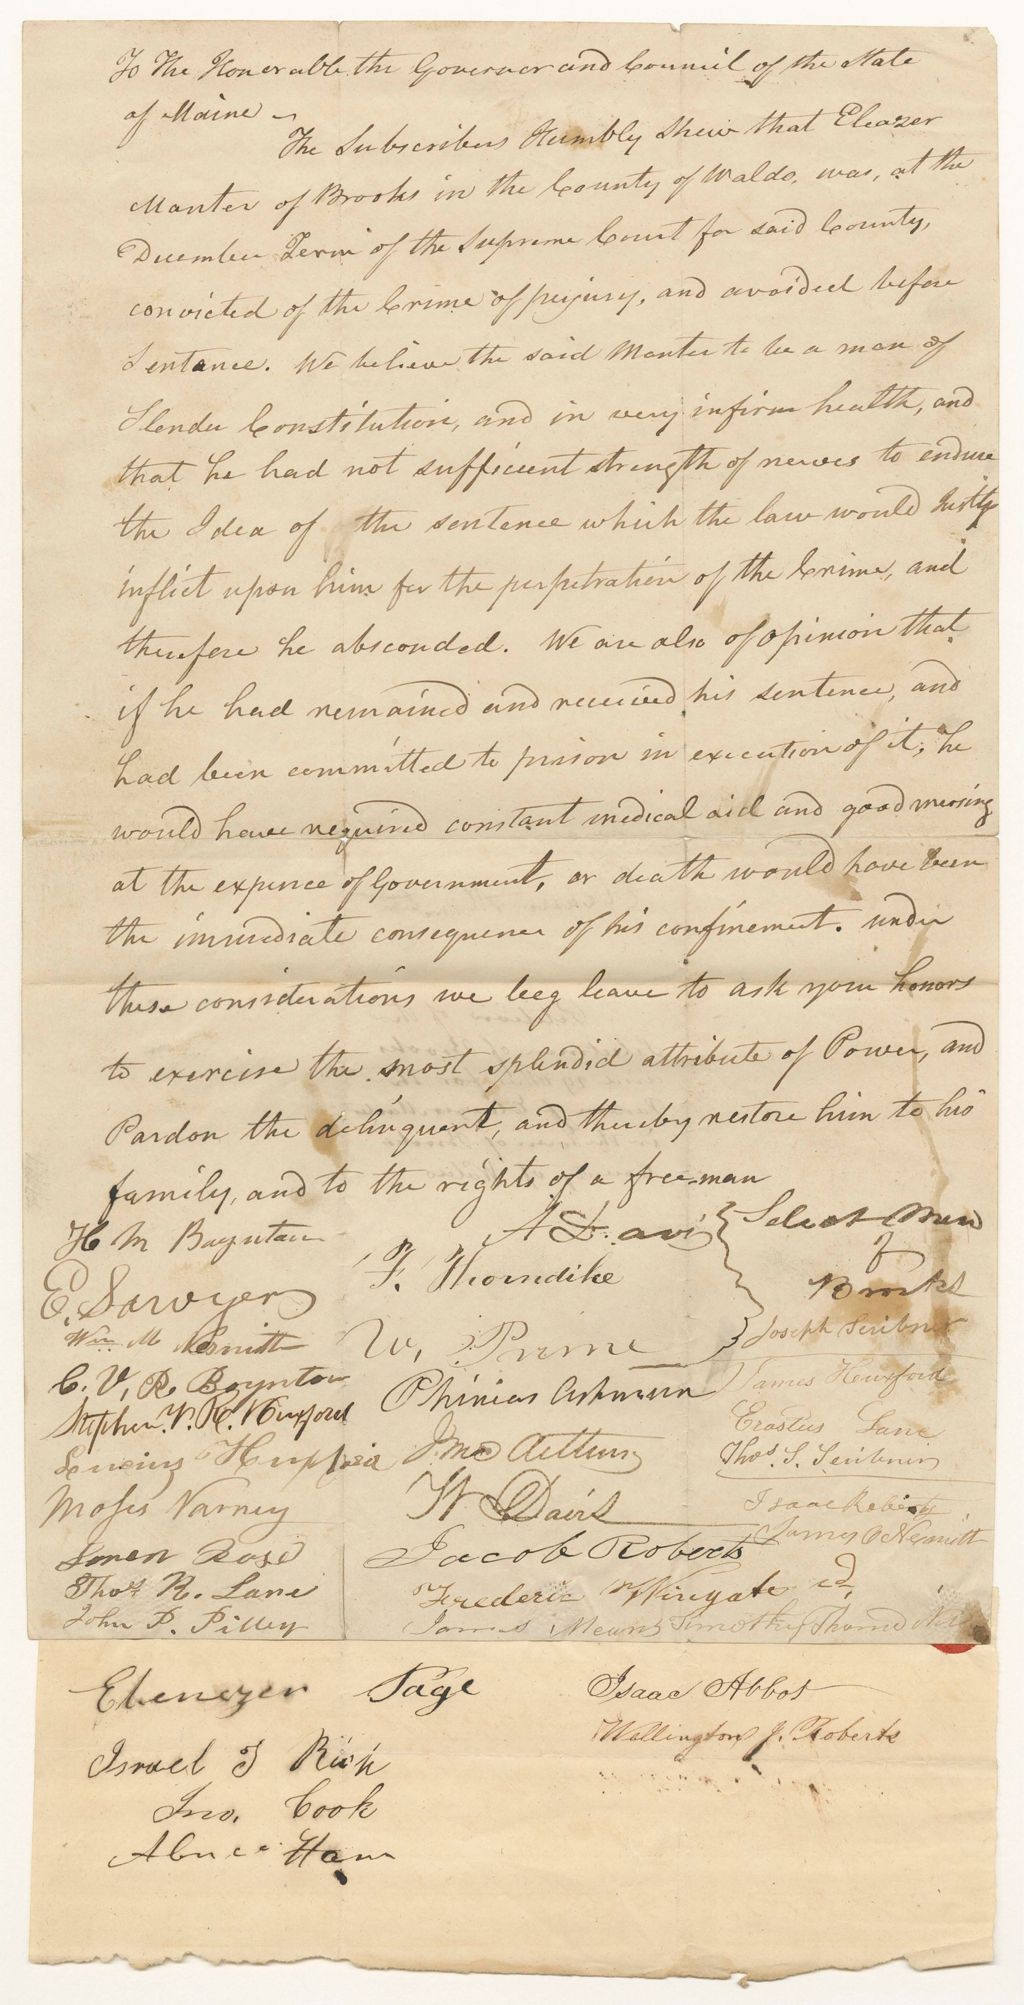 To The Honerable the Governor and Council of the State
of Maine
The Subscribers Humbly Shew that Eleazer
Manter of Brooks in the County of Waldo, was, at the
December Term of the Supreme Court for said County,
convicted of the Crime of perjury, and avoided before
Sentance. We believe the said Manter to be a man of
Slender Constitution, and in very infirm health, and
that he had not sufficient strength of nerves to endure
the Idea of the sentence which the law would Justly
inflict upon him for the perpetration of the Crime, and
therefore he absconded. We are also of opinion that
if he had remained and received his sentence, and
had been committed to prison in execution of it, he
would have required constant medical aid and good nursing
at the expence of Government, or death would have been
the immediate consequence of his confinement. under
these considerations we beg leave to ask your honors
to exercise the most splendid attribute of Power, and
Pardon the delinquent, and thereby restore him to his
family, and to the rights of a free-man
A Davis Select Men
F. Thorndike of
W. Prime Brooks
H M Boynton
E. Sawyer
Wm M Nesmith
C. V. R. Boynton
Stephen V. R. Huxford
Huxford
Moses Varney
Loren Rose
Thos R. Lane
John P. Pilley
Phinias Ashmun
J. Mc Arthur
W Davis
Jacob Roberts
Frederic Wingate 2d,
James Means
Timothy Thorndike
Joseph Scribner
James Huxford
Erastus Lane
Thos. S. Scribner
Isaac Roberts
James Nesmith
Ebenezer Page
Isaac Abbot
Wallington J. Roberts
Israel T Rich
Jno. Cook
Abner Ham